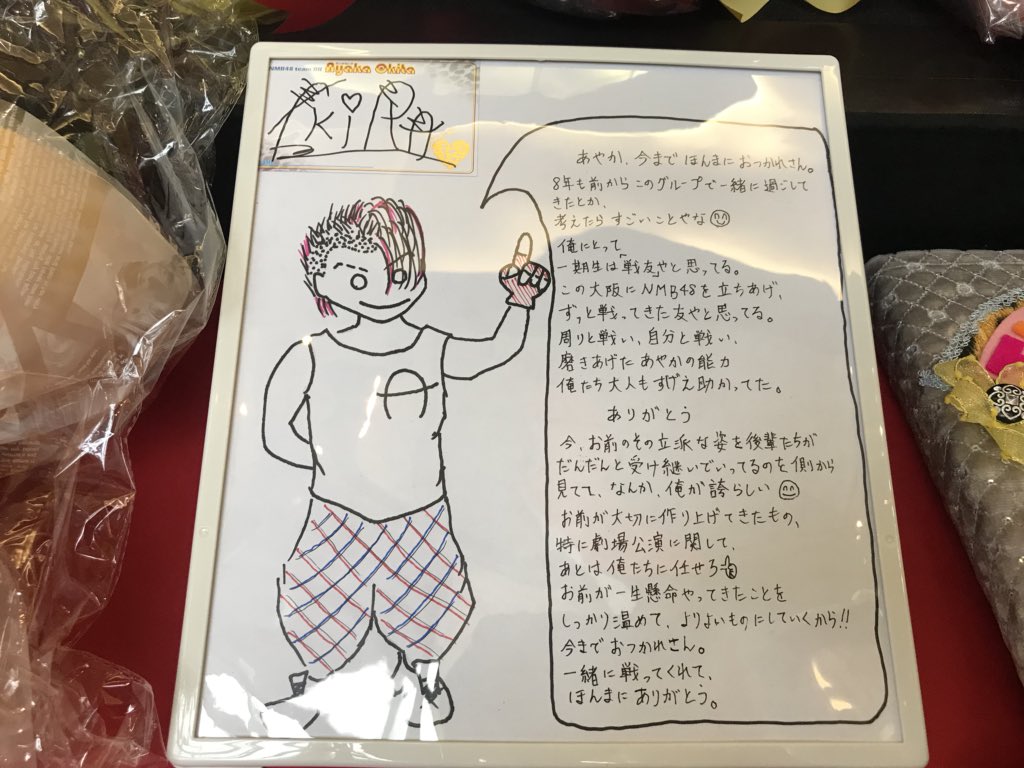 NMB48 team BII Ayaka Okita
あやか、今まで ほんまに おつかれさん。
8年も前からこのグループで一緒に過ごして
きたとか、
考えたら すごいことやな
俺にとって
一期生は戦友やと思ってる。
この大阪にNMB48を立ちあげ、
ずっと戦ってきた友やと思ってる。
周りと戦い、自分と戦い、
磨きあげた あやかの能力
俺たち大人も すげえ助かってた。
ありがとう
今、お前のその立派な姿を後輩たちが
だんだんと受け継いでいってるのを側から
見てて、なんか、俺が誇らしい
お前が大切に作り上げてきたもの、
特に劇場公演に関して、
あとは俺たちに任せろ
お前が一生懸命やってきたことを
しっかり温めて、よりよいものにしていくから!!
今までおつかれさん。
一緒に戦ってくれて、
ほんまに ありがとう。
A